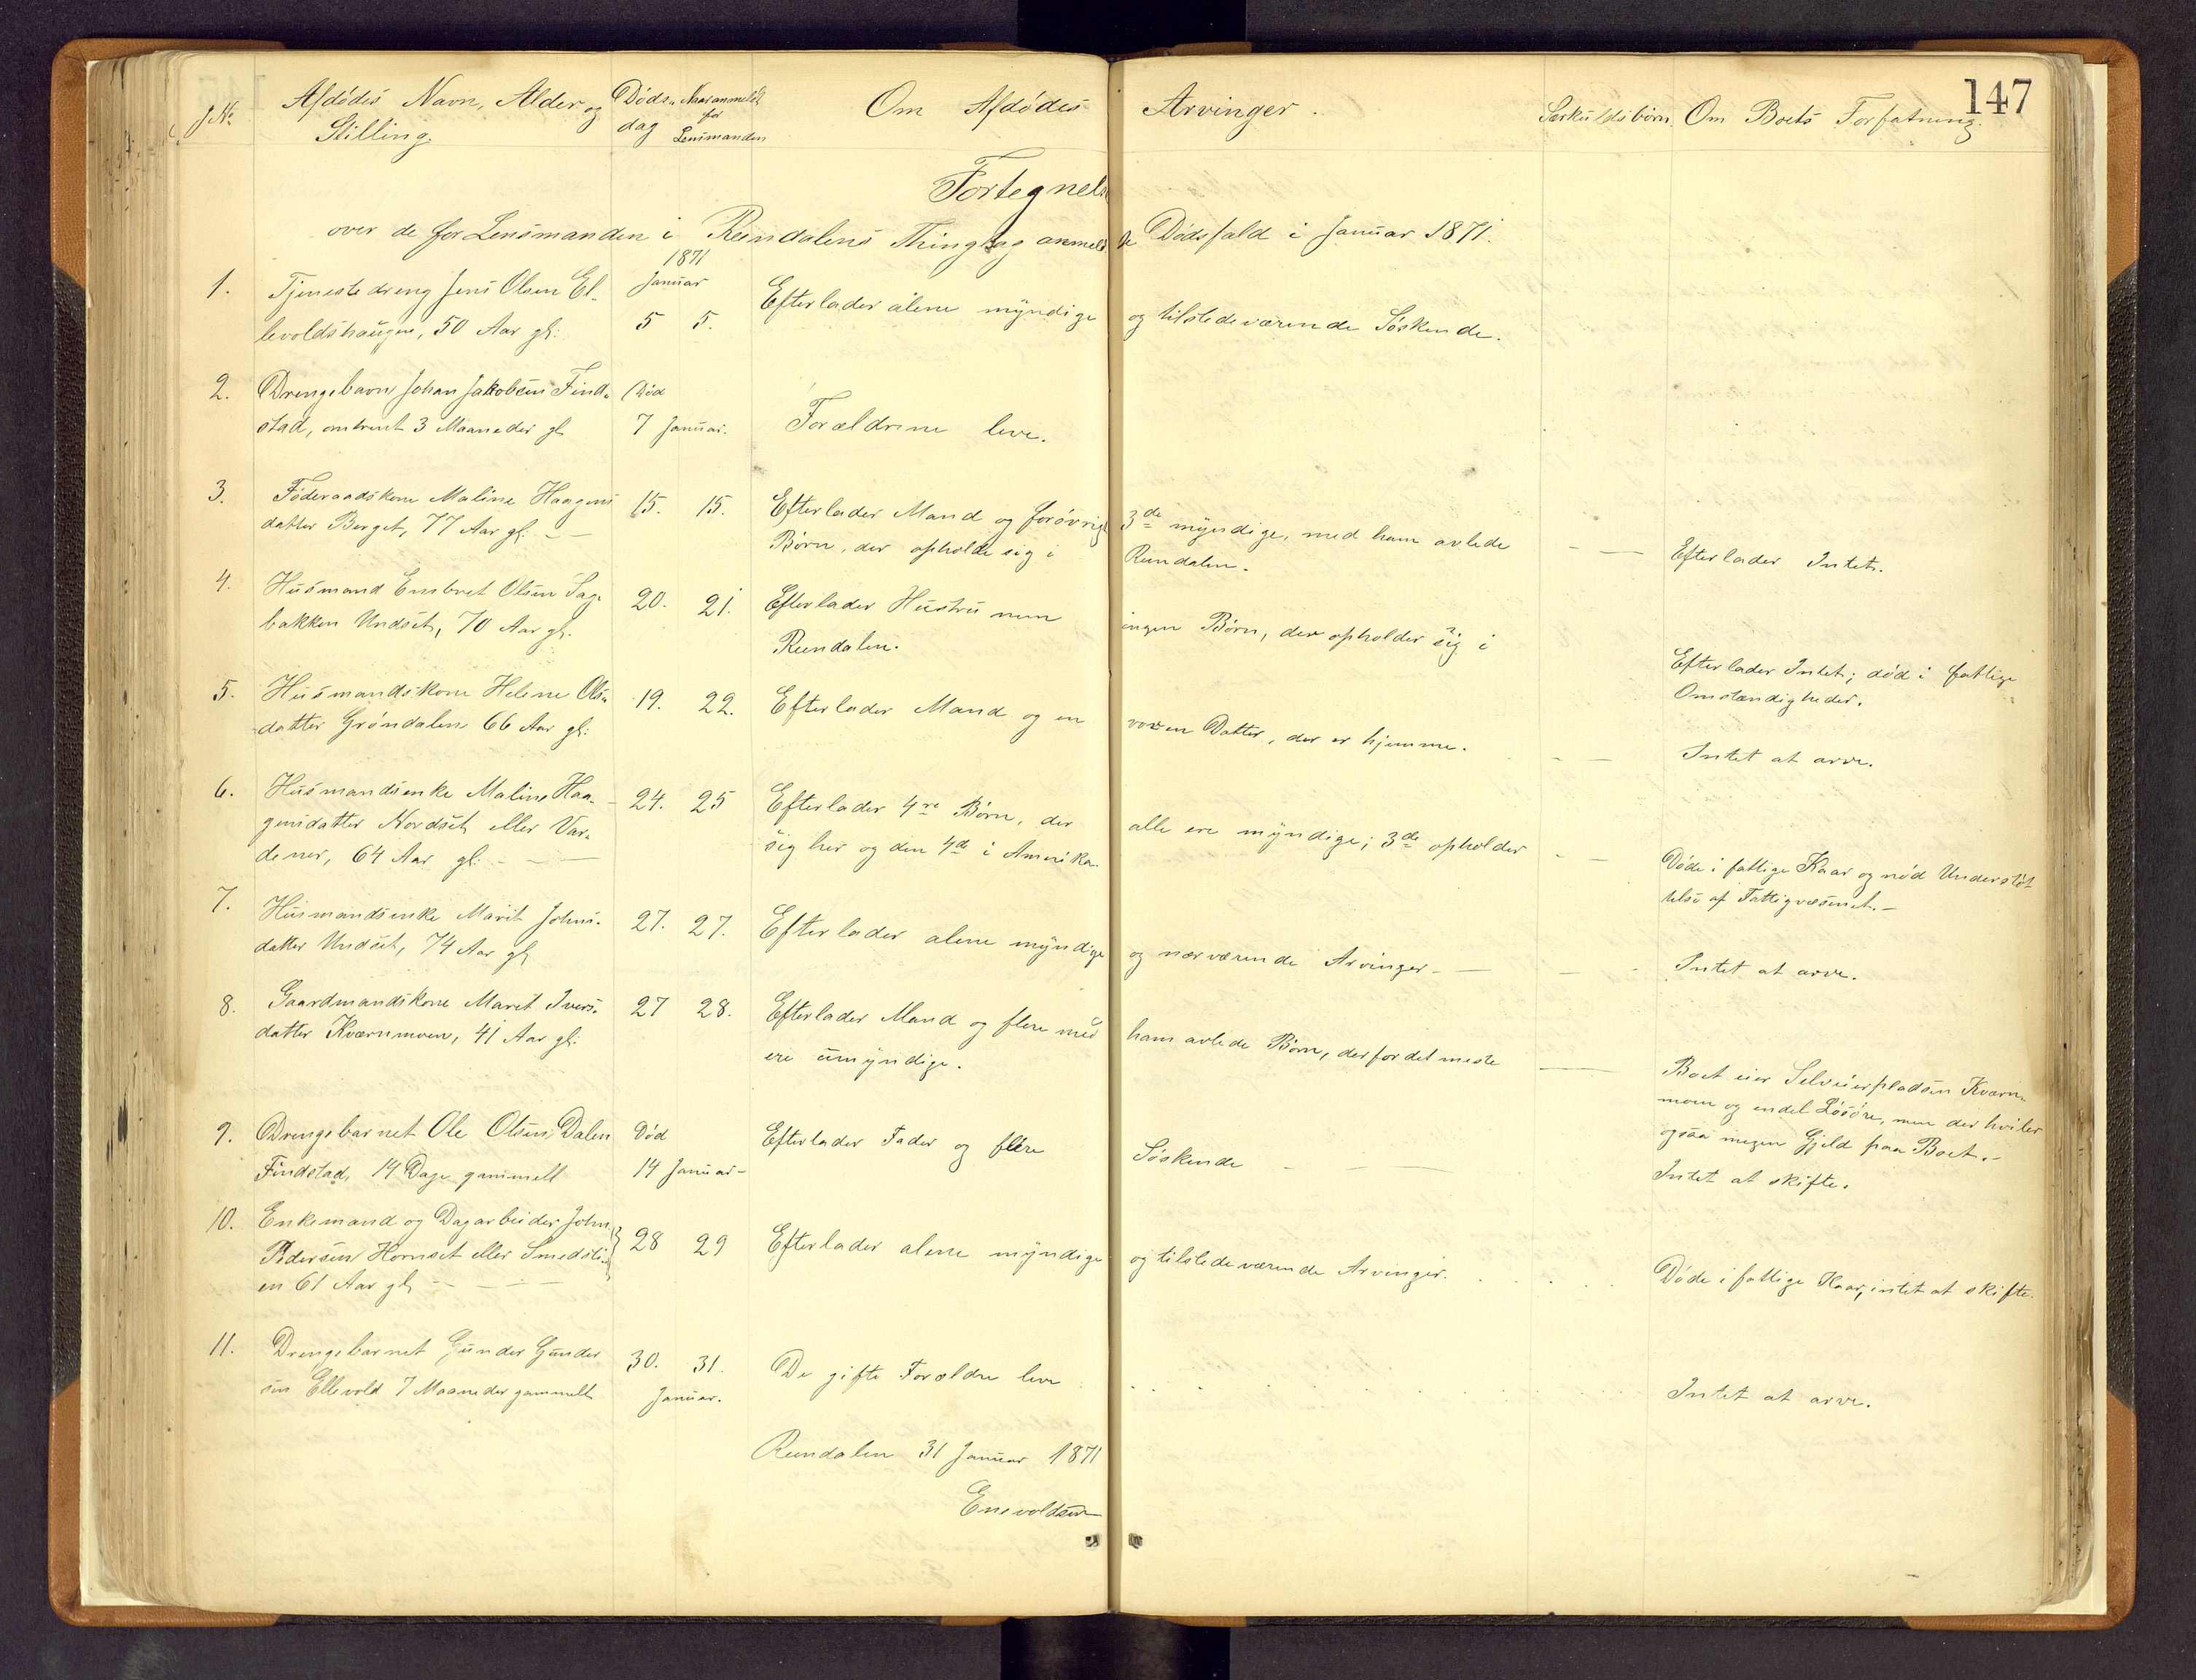 147
J. No. Afdødes Navn, Alder og Stilling. Døds-dag Naar anmeldt for Lensmanden Om Afdødes Arvinger. Særkuldsbørn. Om Boets Forfatning.
Fortegnelse
over de for Lensmanden i Rendalens Thinglag anmeldte Dødsfald i Januar 1871.
1871
1. Tjenestedreng Jens Olsen El- Januar
levoldshaugen, 50 Aar gl: 5 5. Efterlader alene myndige og tilstedeværende Søskende.
2. Drengebarn Johan Jakobsen Find- Død
stad, omtrent 3 Maaneder gl. 7 Januar. Forældrene leve.
3. Føderaadskone Maline Haagens 15. 15. Efterlader Mand og forøvrigt 3de myndige, med ham avlede
datter Berget, 77 Aar gl. Børn, der opholde sig i Rendalen. Efterlader Intet.
4. Husmand Embret Olsen Sag- 20. 21. Efterlader Hustru men ingen Børn, der opholder sig i
bakken Undset, 70 Aar gl. Rendalen. Efterlader Intet; død i fattige
Omstændigheder.
5. Husmandskone Helene Ols- 19. 22. Efterlader Mand og en voxen Datter, der er hjemme.
datter Grøndalen 66 Aar gl: Intet at arve.
6. Husmandsenke Maline Haa- 24. 25 Efterlader 4re Børn, der alle ere myndige; 3de opholder
gensdatter Nordset eller Var- sig her og den 4de i Amerika.
dener, 64 Aar gl: Døde i fattige Kaar og nød Understøt
telse af Fattigvæsenet.
7. Husmandsenke Marit Johns- 27. 27. Efterlader alene myndige og nærværende Arvinger
datter Undset, 74 Aar gl. Intet at arve.
8. Gaardmandskone Marit Ivers- 27 28. Efterlader Mand og flere med ham avlede Børn, der for det meste
datter Kværnmoen, 41 Aar gl: ere umyndige. Boet eier Selveierpladsen Kværn-
moen og endel Løsøre, men der hviler
ogsaa megen Gjeld paa Boet.
9. Drengebarnet Ole Olsen Dalen Død Efterlader Fader og flere Søskende
Findstad, 14 Dage gammelt 14 Januar Intet at skifte.
10. Enkemand og Dagarbeider John
Pedersen Hornset eller Smedsti- 28 29 Efterlader alene myndige og tilstedeværende Arvinger.
en 61 Aar gl. Døde i fattige Kaar, intet at skifte.
11. Drengebarnet Gunder Gunder 30. 31. De gifte Forældre leve
sen Ellevold 7 Maaneder gammelt Januar. Intet at arve.
Rendalen 31 Januar 1871
Enevoldsen